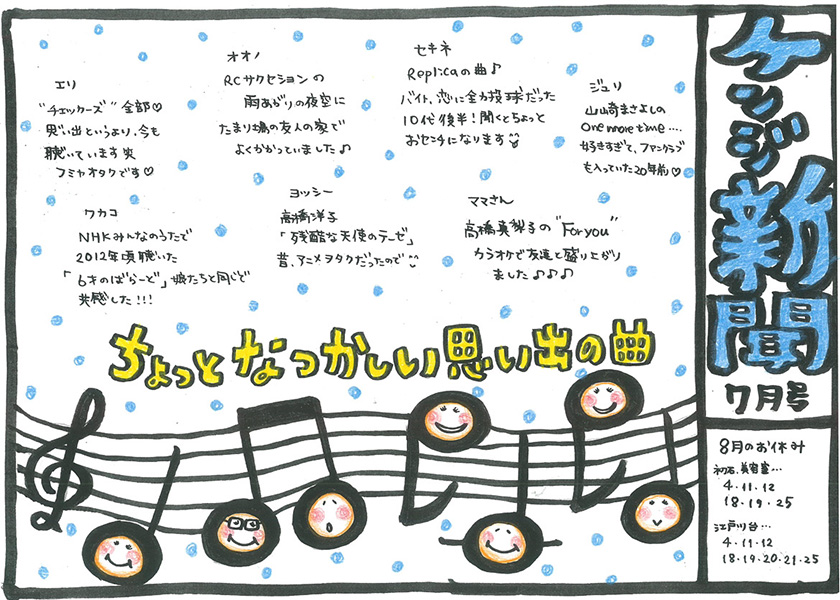 ケンジ新聞
7月号
エリ
"チェッカーズ" 全部♡
思い出というより、今も
聴いています 笑
フミヤオタクです♡
オオノ
RCサクセションの
雨あがりの夜空に
たまり場の友人の家で
よくかかっていました♪
セキネ
Replicaの曲♪
バイト、恋に全力投球だった
10代後半！聞くとちょっと
おセンチになります
ジュリ
山崎まさよしの
One more time....
好きすぎて、ファンクラブ
も入っていた20年前♡
ワカコ
NHKみんなのうたで
2012年頃聴いた
「6才のばらーど」娘たちと同じで
共感した!!!
ヨッシー
高橋洋子
「残酷な天使のテーゼ」
昔、アニメヲタクだったので
ママさん
高橋真梨子の "For you"
カラオケで友達と盛り上がり
ました♪♪♪
ちょっとなつかしい思い出の曲
8月のお休み
初石、美容室...
4・11・12
18・19・25
江戸川台...
4・11・12
18・19・20・21・25